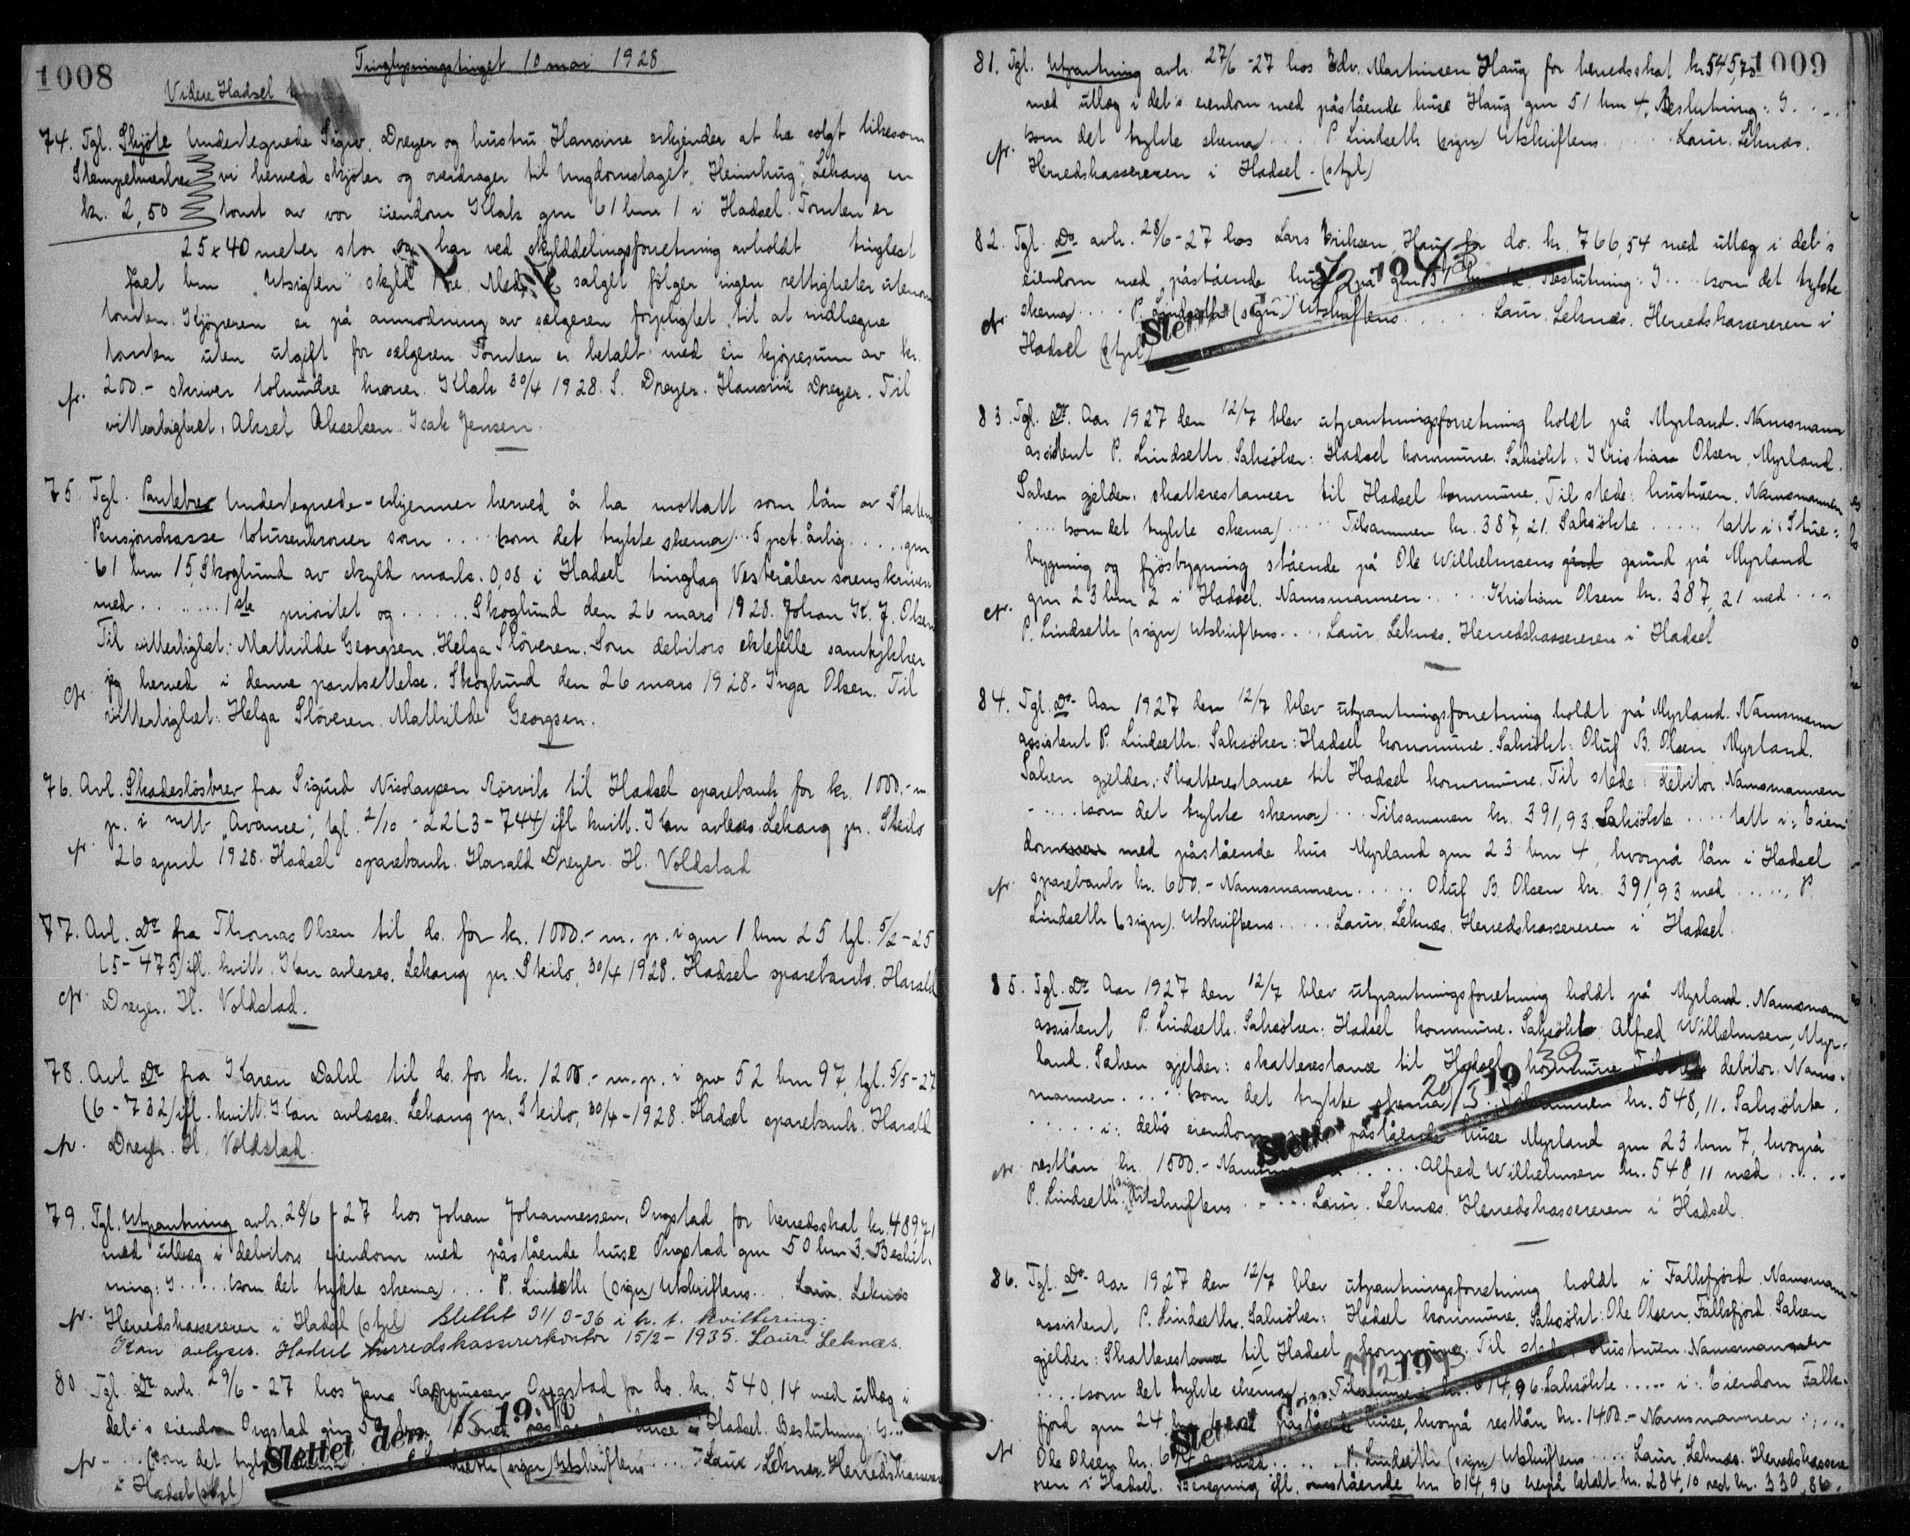 1008
Tinglysningstinget 10 mai 1928
Videre Hadsel
74. Tgl. Skjöte Undertegnede Sigw. Dreyer og hustru Hansine erkjender at ha solgt likesom
Stempelmerke vi herved skjöter og overdrager til Ungdomslaget "Heimhug", Lekang en
kr. 2,50 tomt av vor eiendom Klak gnr 61 bnr 1 i Hadsel. Tomten er
25 x 40 meter stor og har ved skylddelingsforretning avholdt tinglest
faet bnr "Utsigten" skyld 1 öre. Med salget fölger ingen rettigheter utenom
tomten. Kjöperen er på anmodning av sælgeren forpligtet til at indhegne
tomten uten utgift for sælgeren. Tomten er betalt med en kjöpesum av kr.
200.- skriver tohundre kroner. Klak 30/4 1928. S. Dreyer. Hansine Dreyer. Til
vitterlighet: Aksel Akselsen. Isak Jensen.
75. Tgl. Pantebrev Undertegnede - erkjenner herved å ha mottatt som lån av Statens
Pensjonskasse totusenkroner som .... (som det trykte skema) ... 5 pct. årlig ..... gnr
61 bnr 15, Skoglund av skyld mark. 0,08 i Hadsel tinglag Vesterålen sorenskriveri
med ....... 1ste prioritet og ...... Skoglund den 26 mars 1928. Johan K. J. Olsen
Til vitterlighet: Mathilde Georgsen. Helga Slöveren. Som debitors ektefelle samtykker
jeg herved i denne pantsettelse. Skoglund den 26 mars 1928. Inga Olsen. Til
vitterlighet: Helga Slöveren. Mathilde Georgsen.
76. Avl. Skadeslösbrev fra Sigurd Nicolaysen Rörvik til Hadsel sparebank for kr. 1000.- m.
p. i m/b "Avance", tgl. 2/10 - 22 (3-744) ifl. kvitt. Kan avleses. Lekang pr. Skeilo
26 april 1928. Hadsel sparebank. Harald Dreyer. H. Voldstad
77. Avl. Do fra Thomas Olsen til do. for kr. 1000.- m. p. i gnr 1 bnr 25 tgl. 5/2-25
(5-475) ifl. kvitt. Kan avleses. Lekang pr. Skeilo, 30/4 1928. Hadsel sparebank. Harald
Dreyer. H. Voldstad.
78. Avl. Do fra Karen Dahl til do. for kr. 1200.- m. p. i gnr 52 bnr 97, tgl. 5/5-27
(6-732) ifl. kvitt. Kan avleses. Lekang pr. Skeilo, 30/4-1928. Hadsel sparebank. Harald
Dreyer. H. Voldstad.
79. Tgl. Utpantning avh. 28/6-27 hos Johan Johannessen, Ongstad for herredsskat kr. 489,71
med utlæg i debitors eiendom med påstående huse Ongstad gnr 50 bnr 3. Beslut-
ning: I ..... (som det trykte skema) .... P. Lindseth (sign) Utskriftens .... Laur. Leknæs
Herredskassereren i Hadsel (stpl) Slettet 31/3-36 i h. t. kvittering:
Kan avlyses. Hadsel herredskassererkontor 15/2-1935. Laur. Leknæs.
80. Tgl. Do avh. 29/6-27 hos Jens Ongstad for do. kr. 540,14 med utlæg i
deb's eiendom Ongstad gnr 50 bnr med påstående huse i Hadsel. Beslutning: I ...
... (som det trykte skema) P. Lindseth (sign) Utskriftens .... Laur. Leknæs. Herredskassereren
i Hadsel (stpl)
Slettet den 19
1009
81. Tgl. Utpantning avh. 27/6-27 hos Edv. Martinsen Haug for herredsskat kr. 545,73
med utlæg i deb's eiendom med påstående huse Haug gnr 51 bnr 4. Beslutning: I ....
som det trykte skema) .... P. Lindseth (sign) Utskriftens ...... Laur. Leknæs.
Herredskassereren i Hadsel. (stpl)
82. Tgl. Do avh. 28/6-27 hos Lars Eriksen Haug for do. kr. 766,54 med utlæg i deb's
eiendom med påstående huse på gnr 51 bnr Beslutning: I .... (som det trykte
skema) .... P. Lindseth (sign) Utskriftens ...... Laur. Leknæs. Herredskassereren i
Hadsel (stpl)
83. Tgl. Do. Aar 1927 den 12/7 blev utpantningsforretning holdt på Myrland. Namsmann
assistent P. Lindseth. Saksöker: Hadsel kommune. Saksökt: Kristian Olsen, Myrland.
Saken gjelder: skatterestancer til Hadsel kommune. Til stede: hustruen. Namsmannen
.... (som det trykte skema) ..... Tilsammen kr. 387,21. Saksökte ...... tatt i: Stue-
bygning og fjösbygning stående på Ole Wilhelmsens gård grund på Myrland
gnr 23 bnr 2 i Hadsel. Namsmannen ..... Kristian Olsen kr. 387,21 med ....
P. Lindseth (sign) Utskriftens .... Laur. Leknæs. Herredskassereren i Hadsel
84. Tgl. Do. Aar 1927 den 12/7 blev utpantningsforretning holdt på Myrland. Namsmann
assistent P. Lindseth. Saksöker: Hadsel kommune. Saksökt: Oluf B. Olsen Myrland.
Saken gjelder: Skatterestance til Hadsel kommune. Til stede: debitor. Namsmannen
..... (som det trykte skema) ... Tilsammen kr. 391,93. Saksökte .... tatt i: Eien-
dommen med påstående hus Myrland gnr 23 bnr 4, hvorpå lån i Hadsel
sparebank kr. 600.- Namsmannen ..... Oluf B. Olsen kr. 391,93 med ..... P.
Lindseth (sign). Utskriftens ..... Laur. Leknæs. Herredskassereren i Hadsel.
85. Tgl. Do Aar 1927 den 12/7 blev utpantningsforretning holdt på Myrland. Namsmann
assistent P. Lindseth. Saksöker: Hadsel kommune. Saksökt: Alfred Wilhelmsen, Myr-
land. Saken gjelder: skatterestance til Hadsel kommune. Til stede debitor. Nams-
mannen ..... (som det trykte skema) ... Tilsammen kr. 548,11. Saksökte.
..... i: deb's eiendom med påstående huse Myrland gnr 23 bnr 7, hvorpå
restlån kr. 1500.- Namsmannen .... Alfred Wilhelmsen kr. 548,11 med ......
P. Lindseth (sign) Utskriftens ..... Laur. Leknæs. Herredskassereren i Hadsel.
Slettet 20/5 1939
86. Tgl. Do. Aar 1927 den 12/7 blev utpantningsforretning holdt i Falkfjord. Namsmann-
assistent P. Lindseth. Saksöker: Hadsel kommune. Saksökt: Ole Olsen, Falkfjord. Saken
gjelder: Skatterestance til Hadsel kommune. Til stede: Hustruen. Namsmannen
.... (som det trykte skema) ... Tilsammen kr. 614,96. Saksökte ..... i: Eiendom Falk-
fjord gnr 24 bnr med påstående huse, hvorpå restlån kr. 1400.- Namsmannen .....
Ole Olsen kr. 614,96 med ..... P. Lindseth (sign) Utskriftens .... Laur. Leknæs. Herredskasse-
reren i Hadsel. Beregning ifl. omstående kr. 614,96 herpå betalt kr. 284,10 rest kr. 330,86.
Slettet den 19